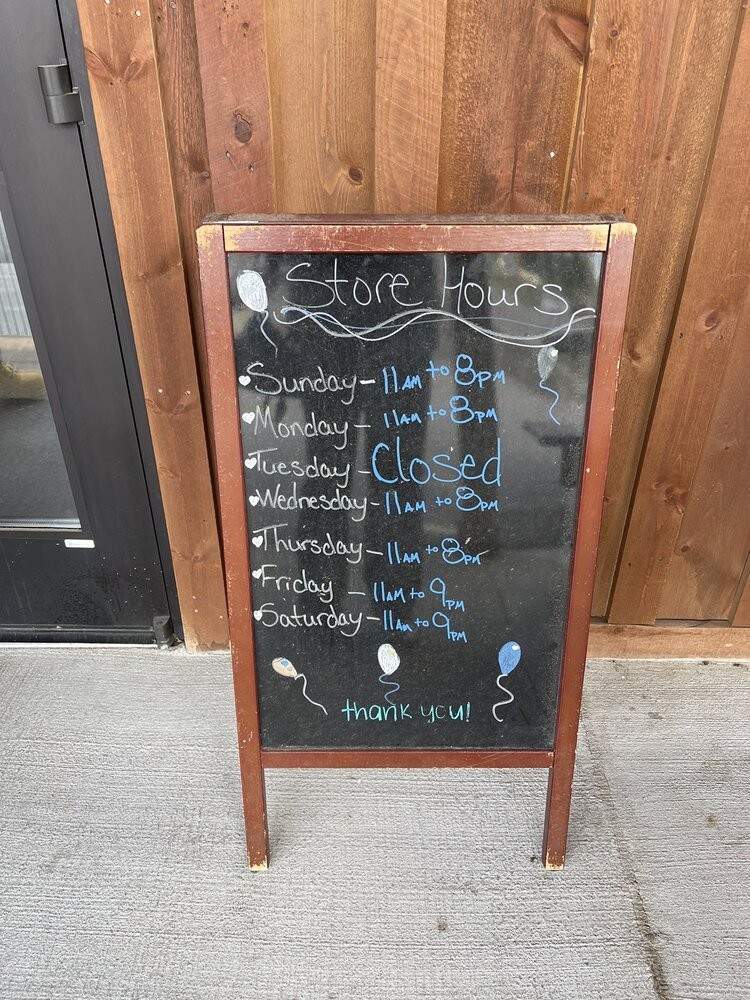 Store Hours
Sunday - 11AM to 8PM
Monday - 11AM to 8PM
Tuesday - Closed
Wednesday - 11AM to 8PM
Thursday - 11AM to 8PM
Friday - 11AM to 9PM
Saturday - 11AM to 9PM
thank you!